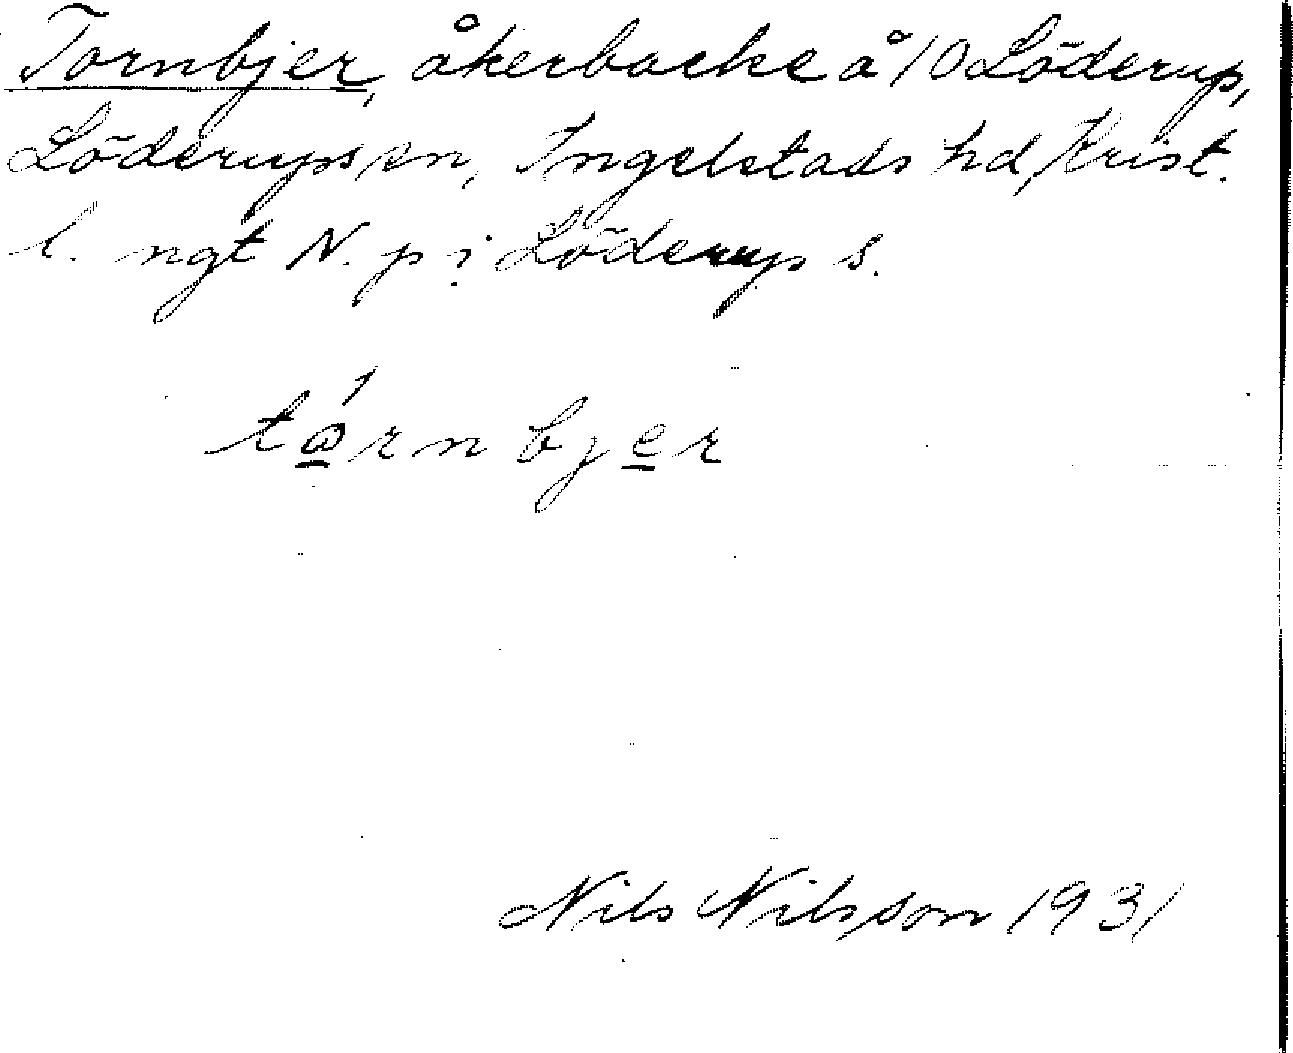 Tornbjer, åkerbacke å 10 Löderup,
Löderups sn, Ingelstads hd, Krist.
l. ngt N. p i Löderup s.
tǻrn bjer
Nils Nilsson 1931